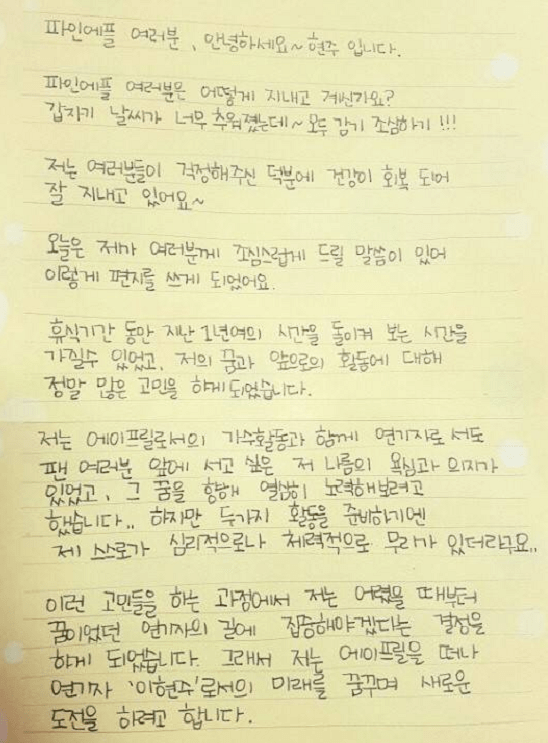 파인에플 여러분, 안녕하세요~ 현주 입니다.
파인에플 여러분은 어떻게 지내고 계신가요?
갑자기 날씨가 너무 추워졌는데~ 모두 감기 조심하기!!!
저는 여러분들이 걱정해주신 덕분에 건강이 회복 되어
잘 지내고 있어요~
오늘은 제가 여러분께 조심스럽게 드릴 말씀이 있어
이렇게 편지를 쓰게 되었어요.
휴식기간 동안 지난 1년여의 시간을 돌이켜 보는 시간을
가질수 있었고, 저의 꿈과 앞으로의 활동에 대해
정말 많은 고민을 하게되었습니다.
저는 에이프릴로서의 가수활동과 함께 연기자로서도
팬 여러분 앞에 서고 싶은 저 나름의 욕심과 의지가
있었고, 그 꿈을 향해 열심히 노력해보려고
했습니다.. 하지만 두가지 활동을 준비하기엔
제 스스로가 심리적으로나 체력적으로 무리가 있더라구요..
이런 고민들을 하는 과정에서 저는 어렸을 때부터
꿈이었던 연기자의 길에 집중해야겠다는 결정을
하게 되었습니다. 그래서 저는 에이프릴을 떠나
연기자 '이현주'로서의 미래를 꿈꾸며 새로운
도전을 하려고 합니다.